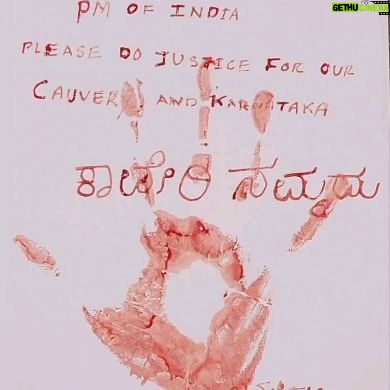 GETHUCINEMA
PM OF INDIA
PLEASE DO JUSTICE FOR OUR
CAUVERY AND KARNATAKA
ಕಾವೇರಿ ನಮ್ಮದು